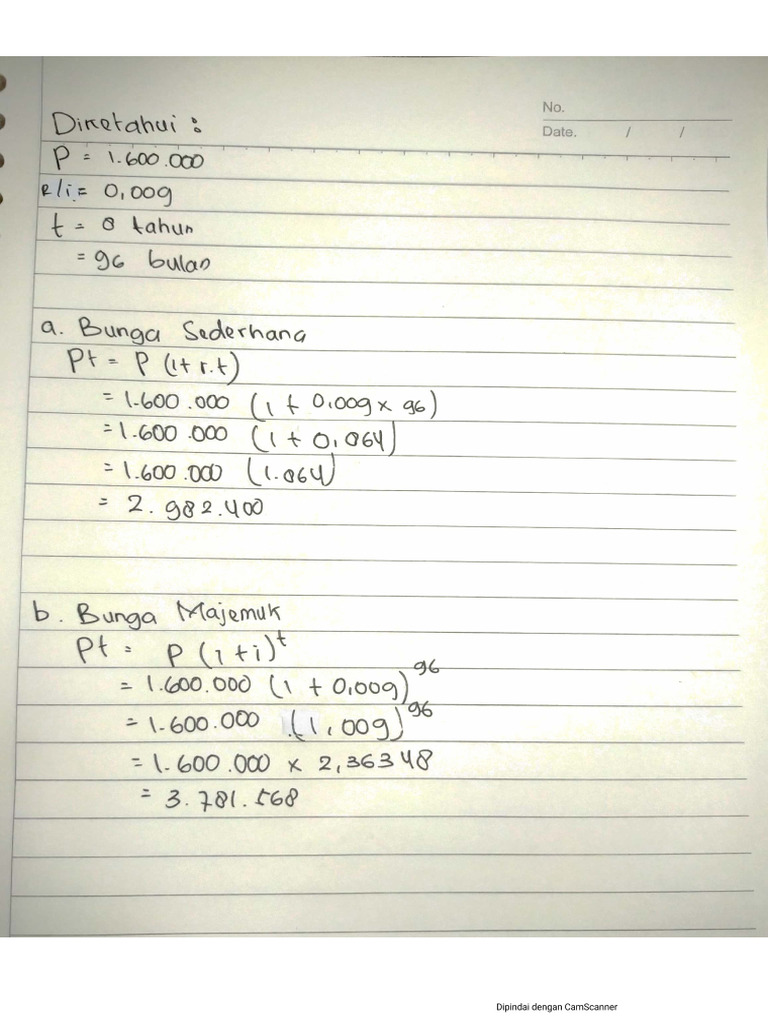 No.
Date. / /
Diketahui :
P = 1.600.000
r/i = 0,009
t = 8 tahun
= 96 bulan
a. Bunga Sederhana
Pt = P (1+ r.t)
= 1.600.000 (1 + 0,009 x 96)
= 1.600.000 (1 + 0,864)
= 1.600.000 (1.864)
= 2.982.400
b. Bunga Majemuk
Pt = P (1+i)^t
= 1.600.000 (1 + 0,009)^96
= 1.600.000 (1,009)^96
= 1.600.000 x 2,36348
= 3.781.568
Dipindai dengan CamScanner